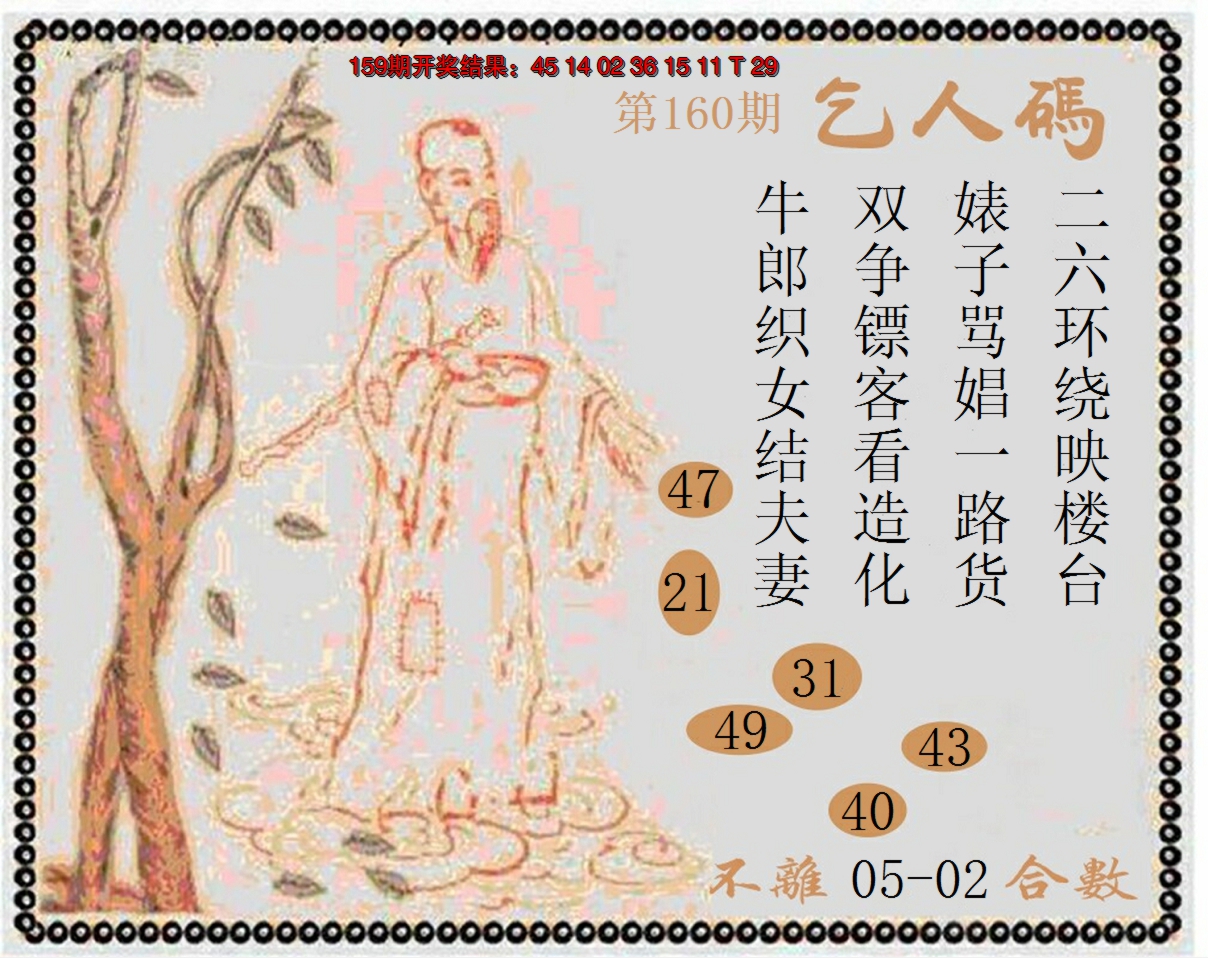 159期开奖结果：45 14 02 36 15 11 T 29
第160期
乞人碼
二六环绕映楼台
婊子骂娼一路货
双争镖客看造化
牛郎织女结夫妻
47
21
31
49
43
40
不離 05-02 合數